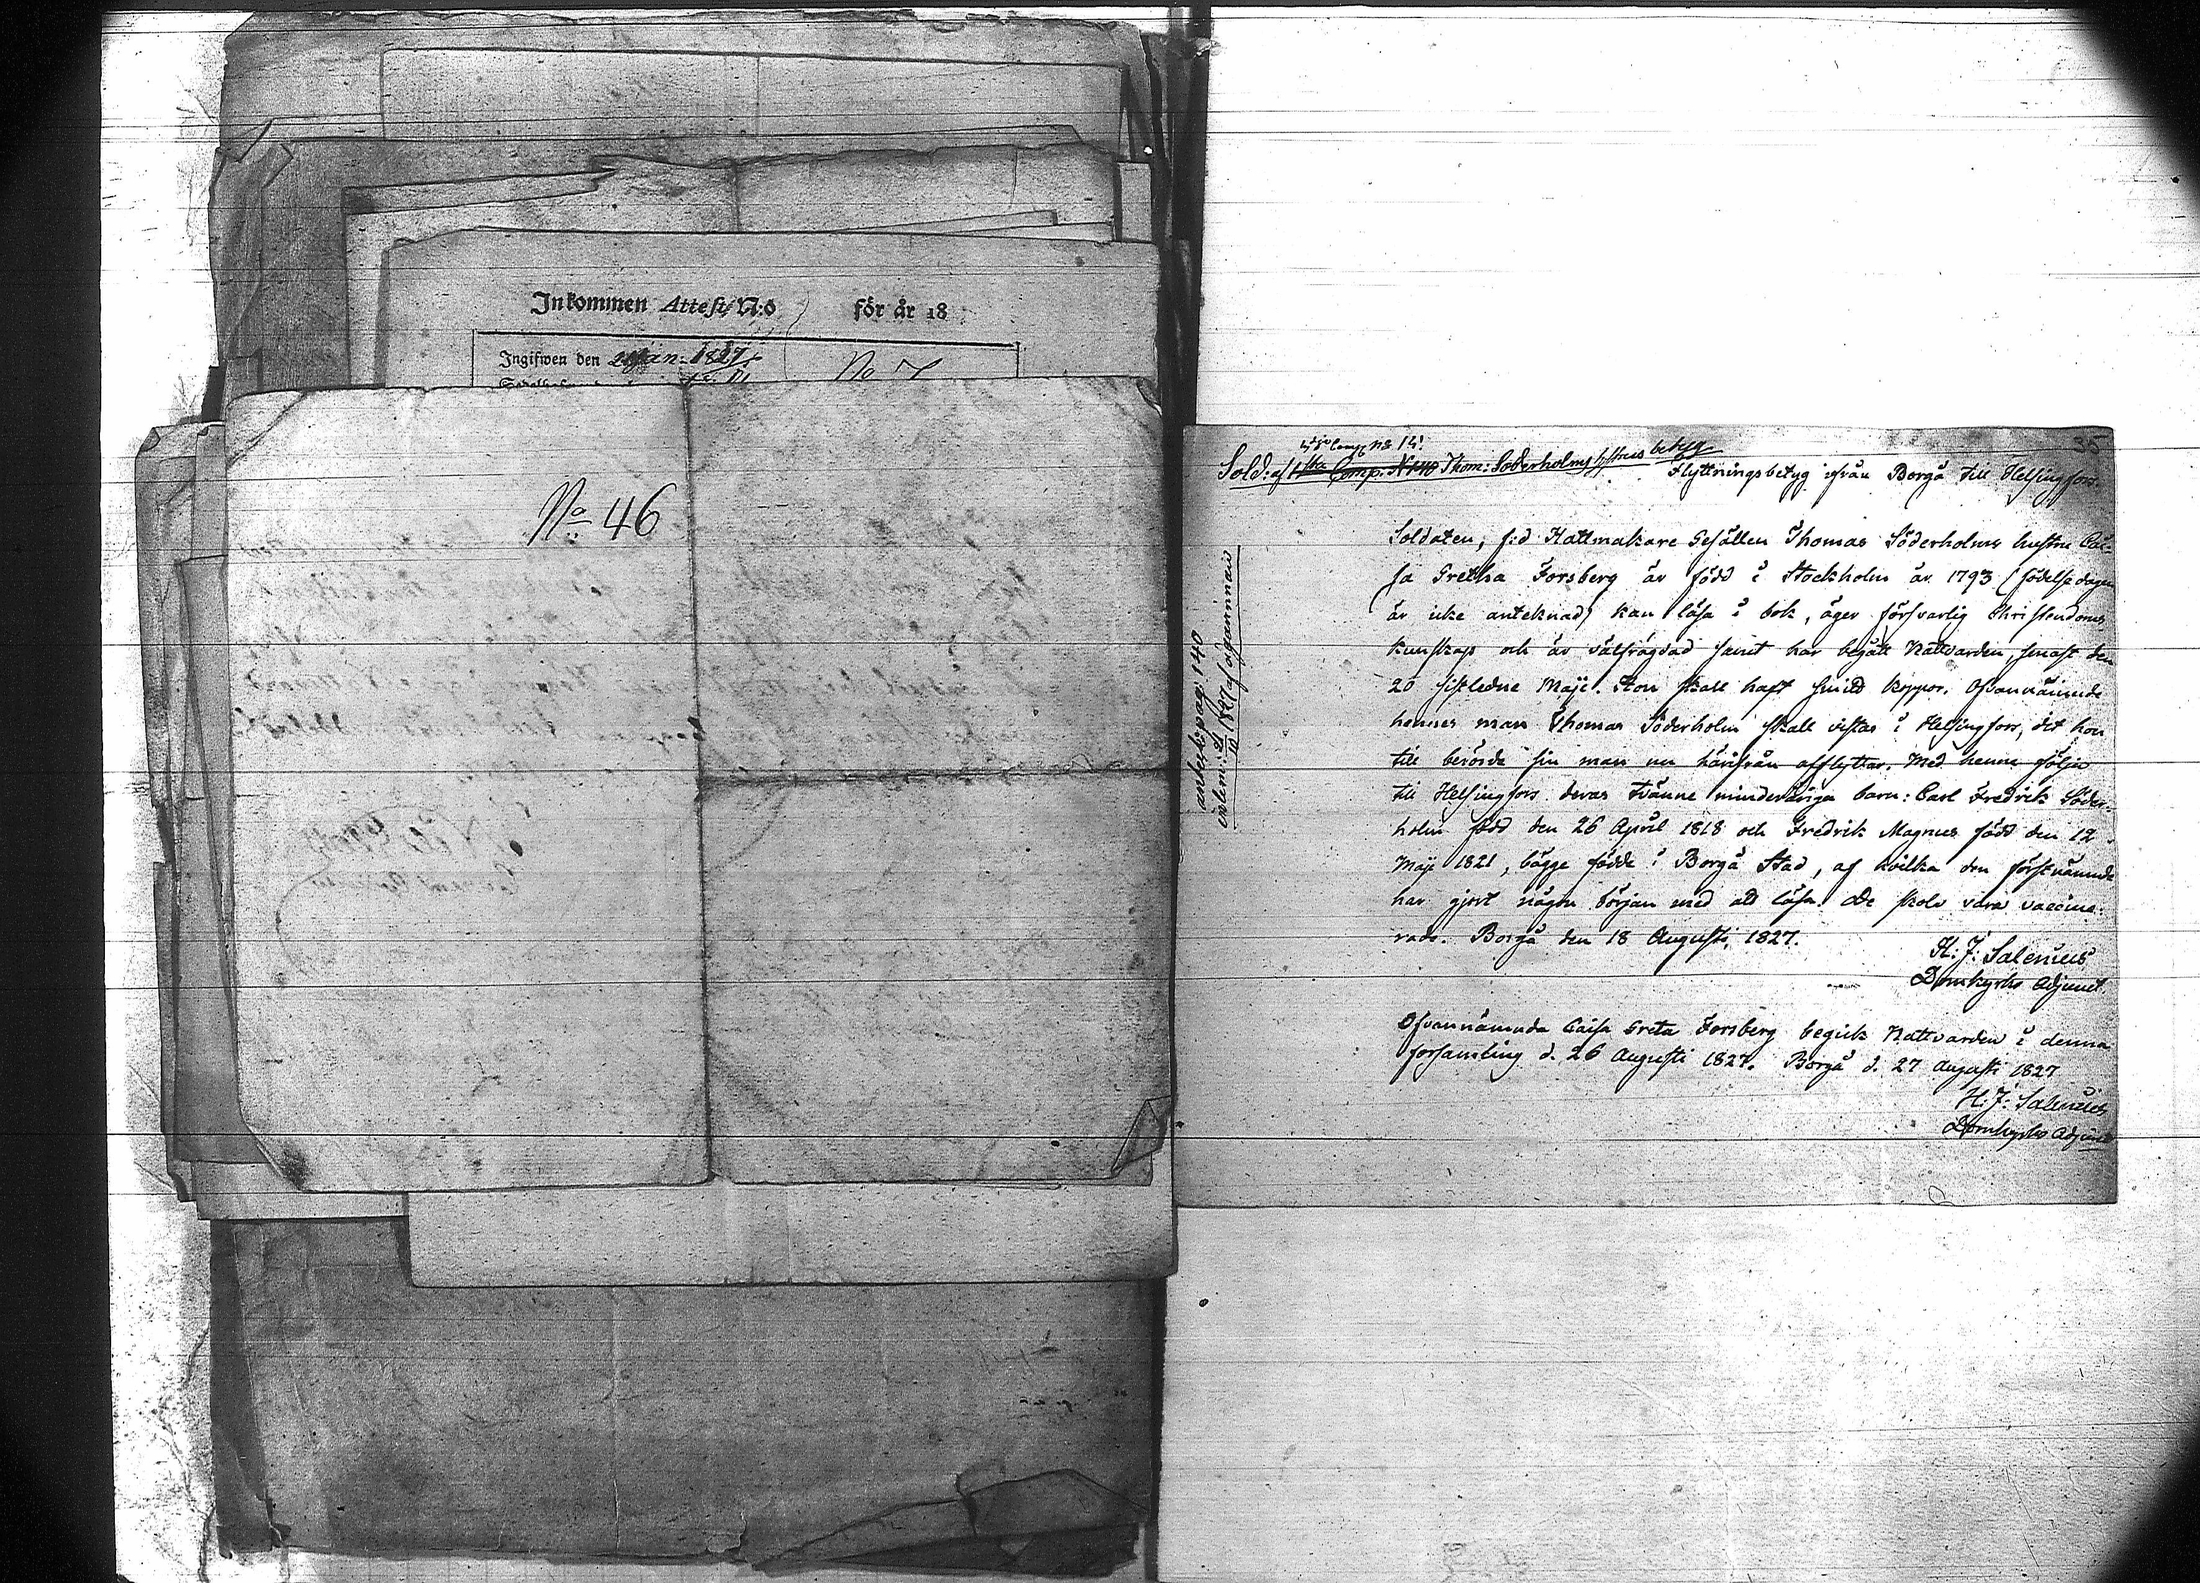 Inkommen Attest N:o för år 18
Ingifwen den Jan: 1827
No 7
No 46
35
Comp N:o 14!
Sold: af Comp: Thom: Söderholms hustrus betyg
Flyttningsbetyg ifrån Borgå till Helsingfors.
Soldaten, f:d Hattmakare Gesällen Thomas Söderholms hustru Cai-
sa Gretha Forsberg är född i Stockholm år 1793 (födelsedagen
är icke anteknad) kan läsa i bok, äger försvarlig Christendoms
kunskap och är välfrägdad samt har begått Nattvarden, senast den
20 sistledne Maji. Hon skall haft smitt koppor. Ofvannämnde
hennes man Thomas Söderholm skall vistas i Helsingfors, dit hon
till berörde sin man nu härifrån afflyttar. Med henne följa
till Helsingfors deras tvänne minderåriga barn: Carl Fredrik Söder-
holm född den 26 April 1818 och Fredrik Magnus född den 12
Maji 1821, bägge födde i Borgå Stad, af hvilka den förstnämnde
har gjort någon början med att läsa. De skola vara vaccine-
rade. Borgå den 18 Augusti, 1827.
H: J: Salenius
Domkyrko Adjunct.
Ofvannämnda Caisa Greta Forsberg begick Nattvarden i denna
församling d. 26 Augusti 1827. Borgå d. 27 Augusti 1827
H: J: Salenius
Domkyrko Adjunct
anteck: pag: 140